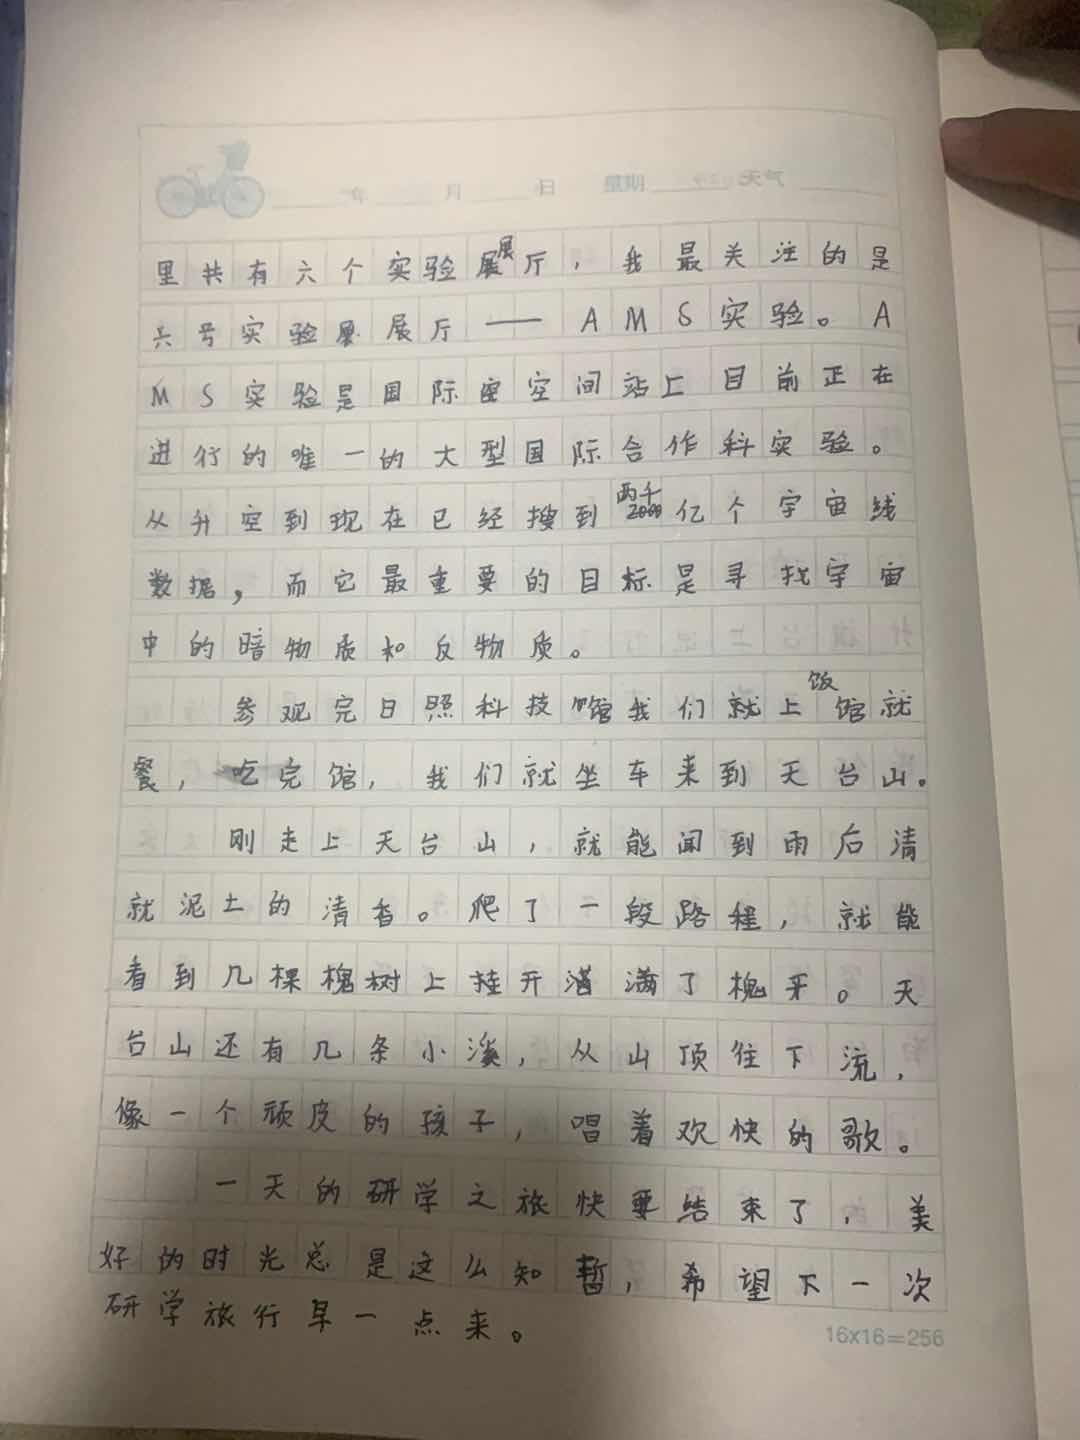 年 月 日 星期 天气
里共有六个实验展厅，我最关注的是
六号实验展厅——AMS实验。A
MS实验是国际空间站上目前正在
进行的唯一的大型国际合作科实验。
从升空到现在已经搜到两千亿个宇宙线
数据，而它最重要的目标是寻找宇宙
中的暗物质和反物质。
参观完日照科技馆我们就上饭馆就
餐，吃完馆，我们就坐车来到天台山。
刚走上天台山，就能闻到雨后清
就泥土的清香。爬了一段路程，就能
看到几棵槐树上挂开满了槐牙。天
台山还有几条小溪，从山顶往下流，
像一个顽皮的孩子，唱着欢快的歌。
一天的研学之旅快要结束了，美
好的时光总是这么知暂，希望下一次
研学旅行早一点来。
16x16=256